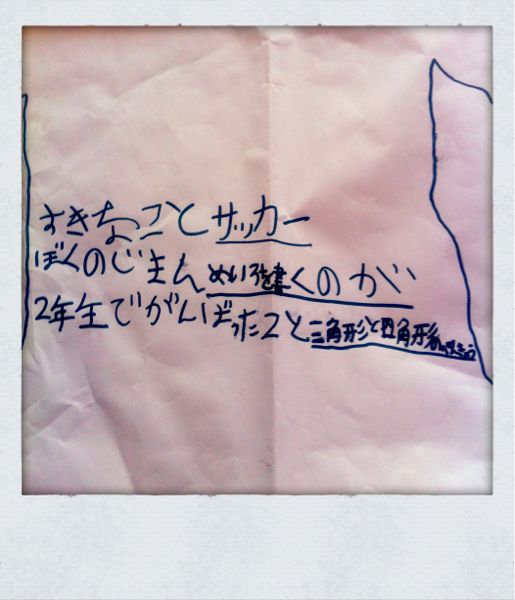 すきなこと サッカー
ぼくのじまん めいろを書くのが
2年生でがんばったこと 三角形と四角形